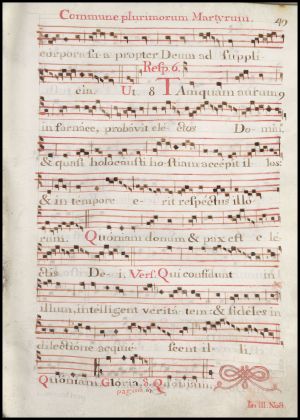 Commune plurimorum Martyrum.
49
corpora sua propter Deum ad suppli
Resp. 6.
cia. Ut 8 Tamquam aurum
in fornace, probavit electos Domi,
& quasi holocausti hostiam accepit illos:
& in tempore erit respectus illo
rum. Quoniam donum & pax est ele
ctis Dei. Vers. Qui confidunt in
illum, intelligent veritatem: & fideles in
dilectione acquiescent illi.
Quoniam. Gloria. 8. Quoniam.
pagina
In III. Noct.